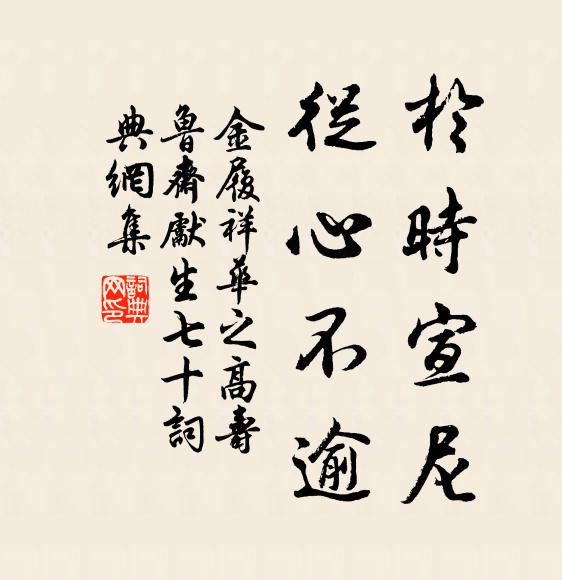 於時宣尼
從心不逾
金履祥華之高壽
魯齋獻生七十詞
典網集
詞典网印